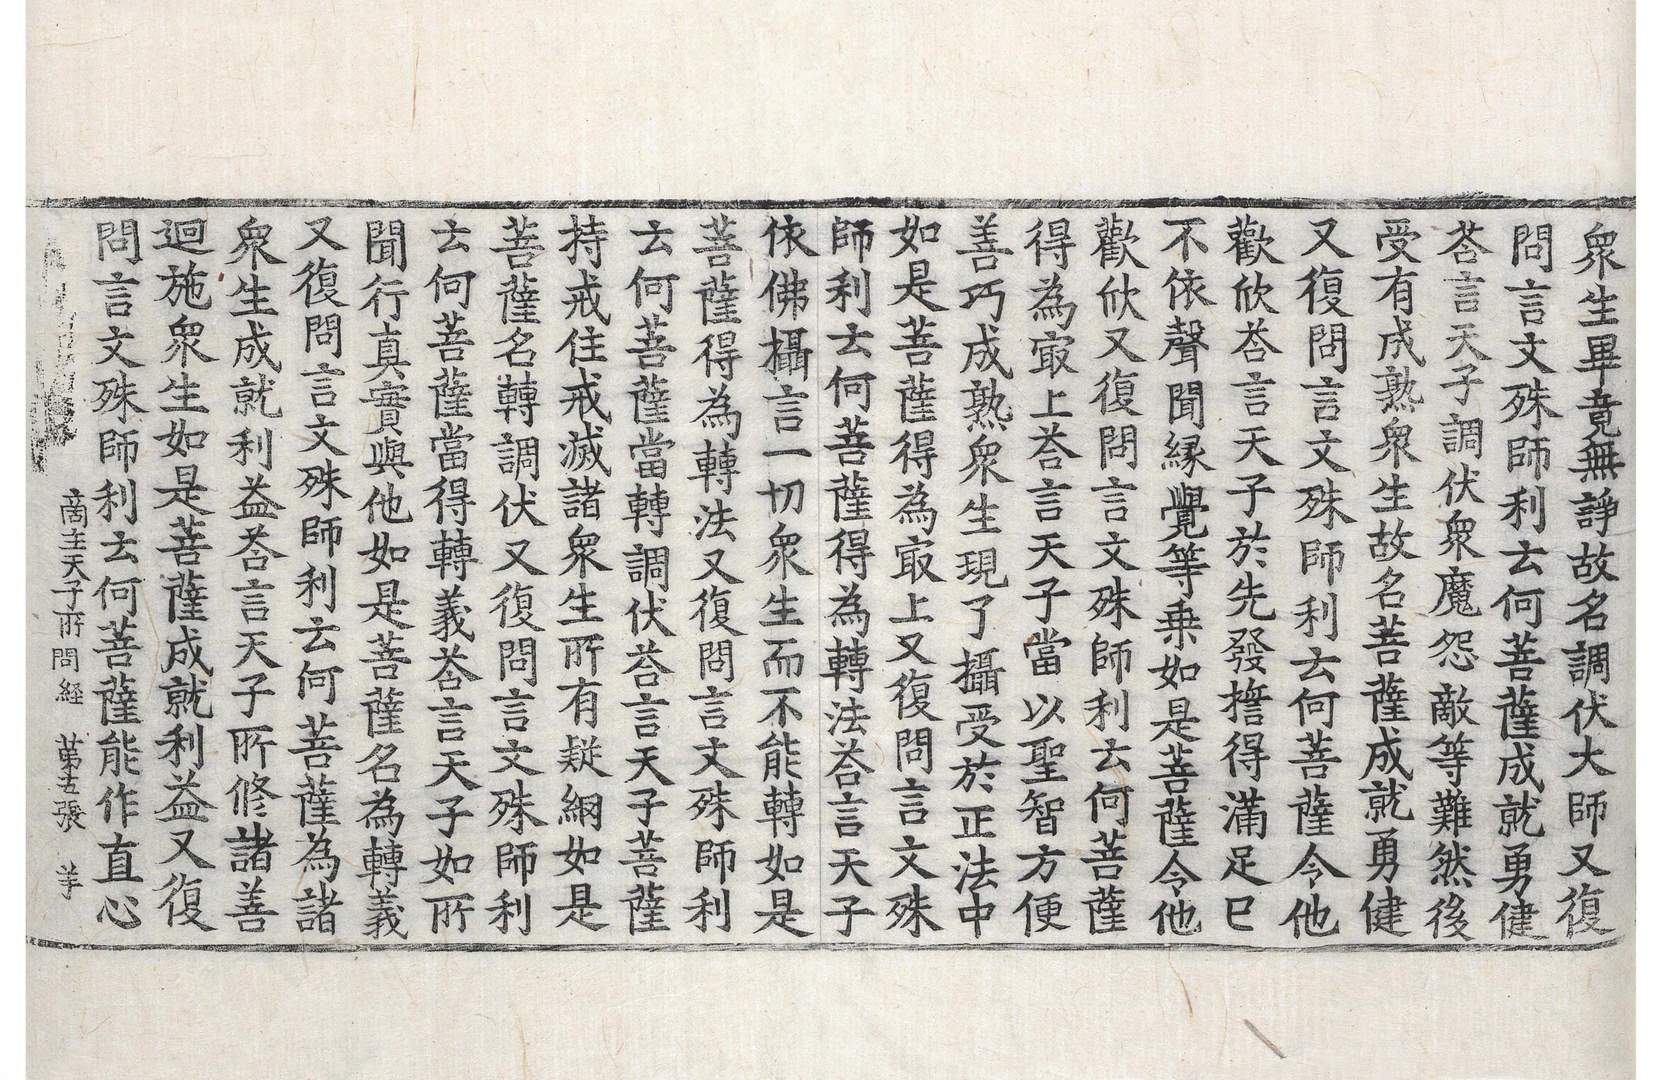 衆生畢竟無諍故名調伏大師又復
問言文殊師利云何菩薩成就勇健
荅言天子調伏衆魔怨敵等難然後
受有成熟衆生故名菩薩成就勇健
又復問言文殊師利云何菩薩令他
歡欣荅言天子於先發擔得滿足已
不依聲聞縁覺等乗如是菩薩令他
歡欣又復問言文殊師利云何菩薩
得為㝡上荅言天子當以聖智方便
善巧成熟衆生現了攝受於正法中
如是菩薩得為㝡上又復問言文殊
師利云何菩薩得為轉法荅言天子
依佛攝言一切衆生而不能轉如是
菩薩得為轉法又復問言文殊師利
云何菩薩當轉調伏荅言天子菩薩
持戒住戒滅諸衆生所有疑網如是
菩薩名轉調伏又復問言文殊師利
云何菩薩當得轉義荅言天子如所
聞行真實與他如是菩薩名為轉義
又復問言文殊師利云何菩薩為諸
衆生成就利益荅言天子所修諸善
迴施衆生如是菩薩成就利益又復
問言文殊師利云何菩薩能作直心
商主天子所問経 第十五張 羊